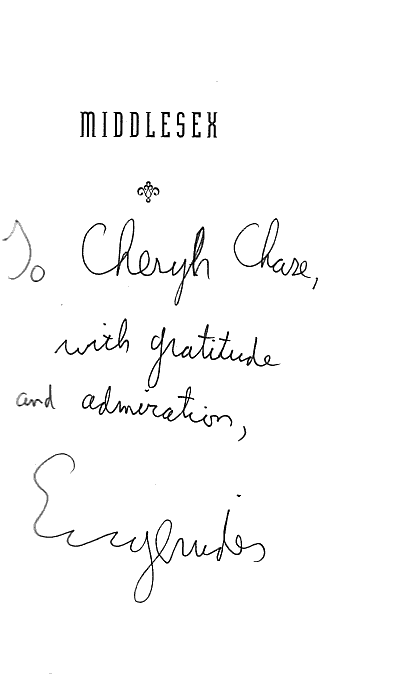 MIDDLESEX
To Cheryl Chase,
with gratitude
and admiration,
Eugenides